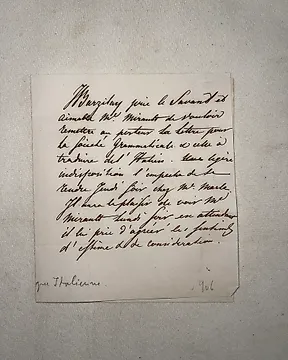 Barzilay prie le Savant et
aimable Mr. Mirault de vouloir
remettre au porteur la lettre pour
la Société Grammaticale et celle à
traduire de l'Italien. Une légère
indisposition l'empêche de se
rendre Jeudi soir chez Mr. Marle
Il aura le plaisir de voir Mr
Mirault lundi soir en attendant
il le prie d'agréer les sentimens
d'estime et de considération.
que Italienne.